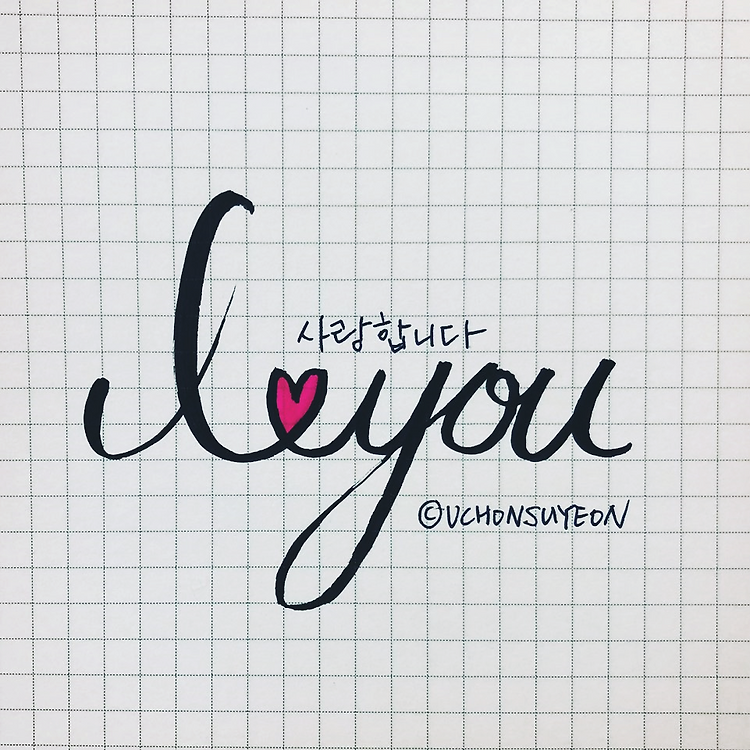 사랑합니다
I ♥ you
©UCHONSUYEON